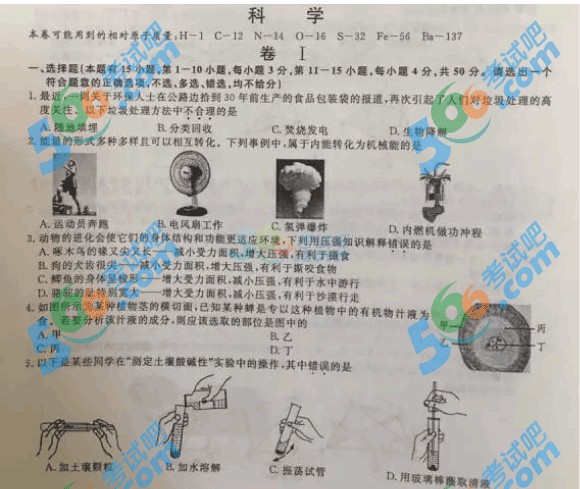 科 学
本卷可能用到的相对原子质量:H-1 C-12 N-14 O-16 S-32 Fe-56 Ba-137
卷 Ⅰ
一、选择题(本题有15小题,第1-10小题,每小题3分,第11-15小题,每小题4分,共50分。请选出一个
符合题意的正确选项,不选、多选、错选,均不给分)
1.最近,一则关于环保人士在公路边拾到30年前生产的食品包装袋的报道,再次引起了人们对垃圾处理的高
度关注。以下垃圾处理方法中不合理的是
A.随地填埋 B.分类回收 C.焚烧发电 D.生物降解
2.能量的形式多种多样且可以相互转化。下列事例中,属于内能转化为机械能的是
A.运动员奔跑 B.电风扇工作 C.氢弹爆炸 D.内燃机做功冲程
3.动物的进化会使它们的身体结构和功能更适应环境,下列用压强知识解释错误的是
A.啄木鸟的喙又尖又长——减小受力面积,增大压强,有利于摄食
B.狗的犬齿很尖——减小受力面积,增大压强,有利于撕咬食物
C.鲫鱼的身体呈梭形——增大受力面积,减小压强,有利于水中游行
D.骆驼的趾特别宽大——增大受力面积,减小压强,有利于沙漠行走
4.如图所示为某种植物茎的横切面,已知某种蝉是专以这种植物中的有机物汁液为
食。若要分析该汁液的成分,则应该选取的部位是图中的
A.甲 B.乙
C.丙 D.丁
甲 丙
乙 丁
5.以下是某些同学在“测定土壤酸碱性”实验中的操作,其中错误的是
A.加土壤颗粒 B.加水溶解 C.振荡试管 D.用玻璃棒蘸取清液
566考试吧
.com
566考试吧
.com
566考试吧
.com